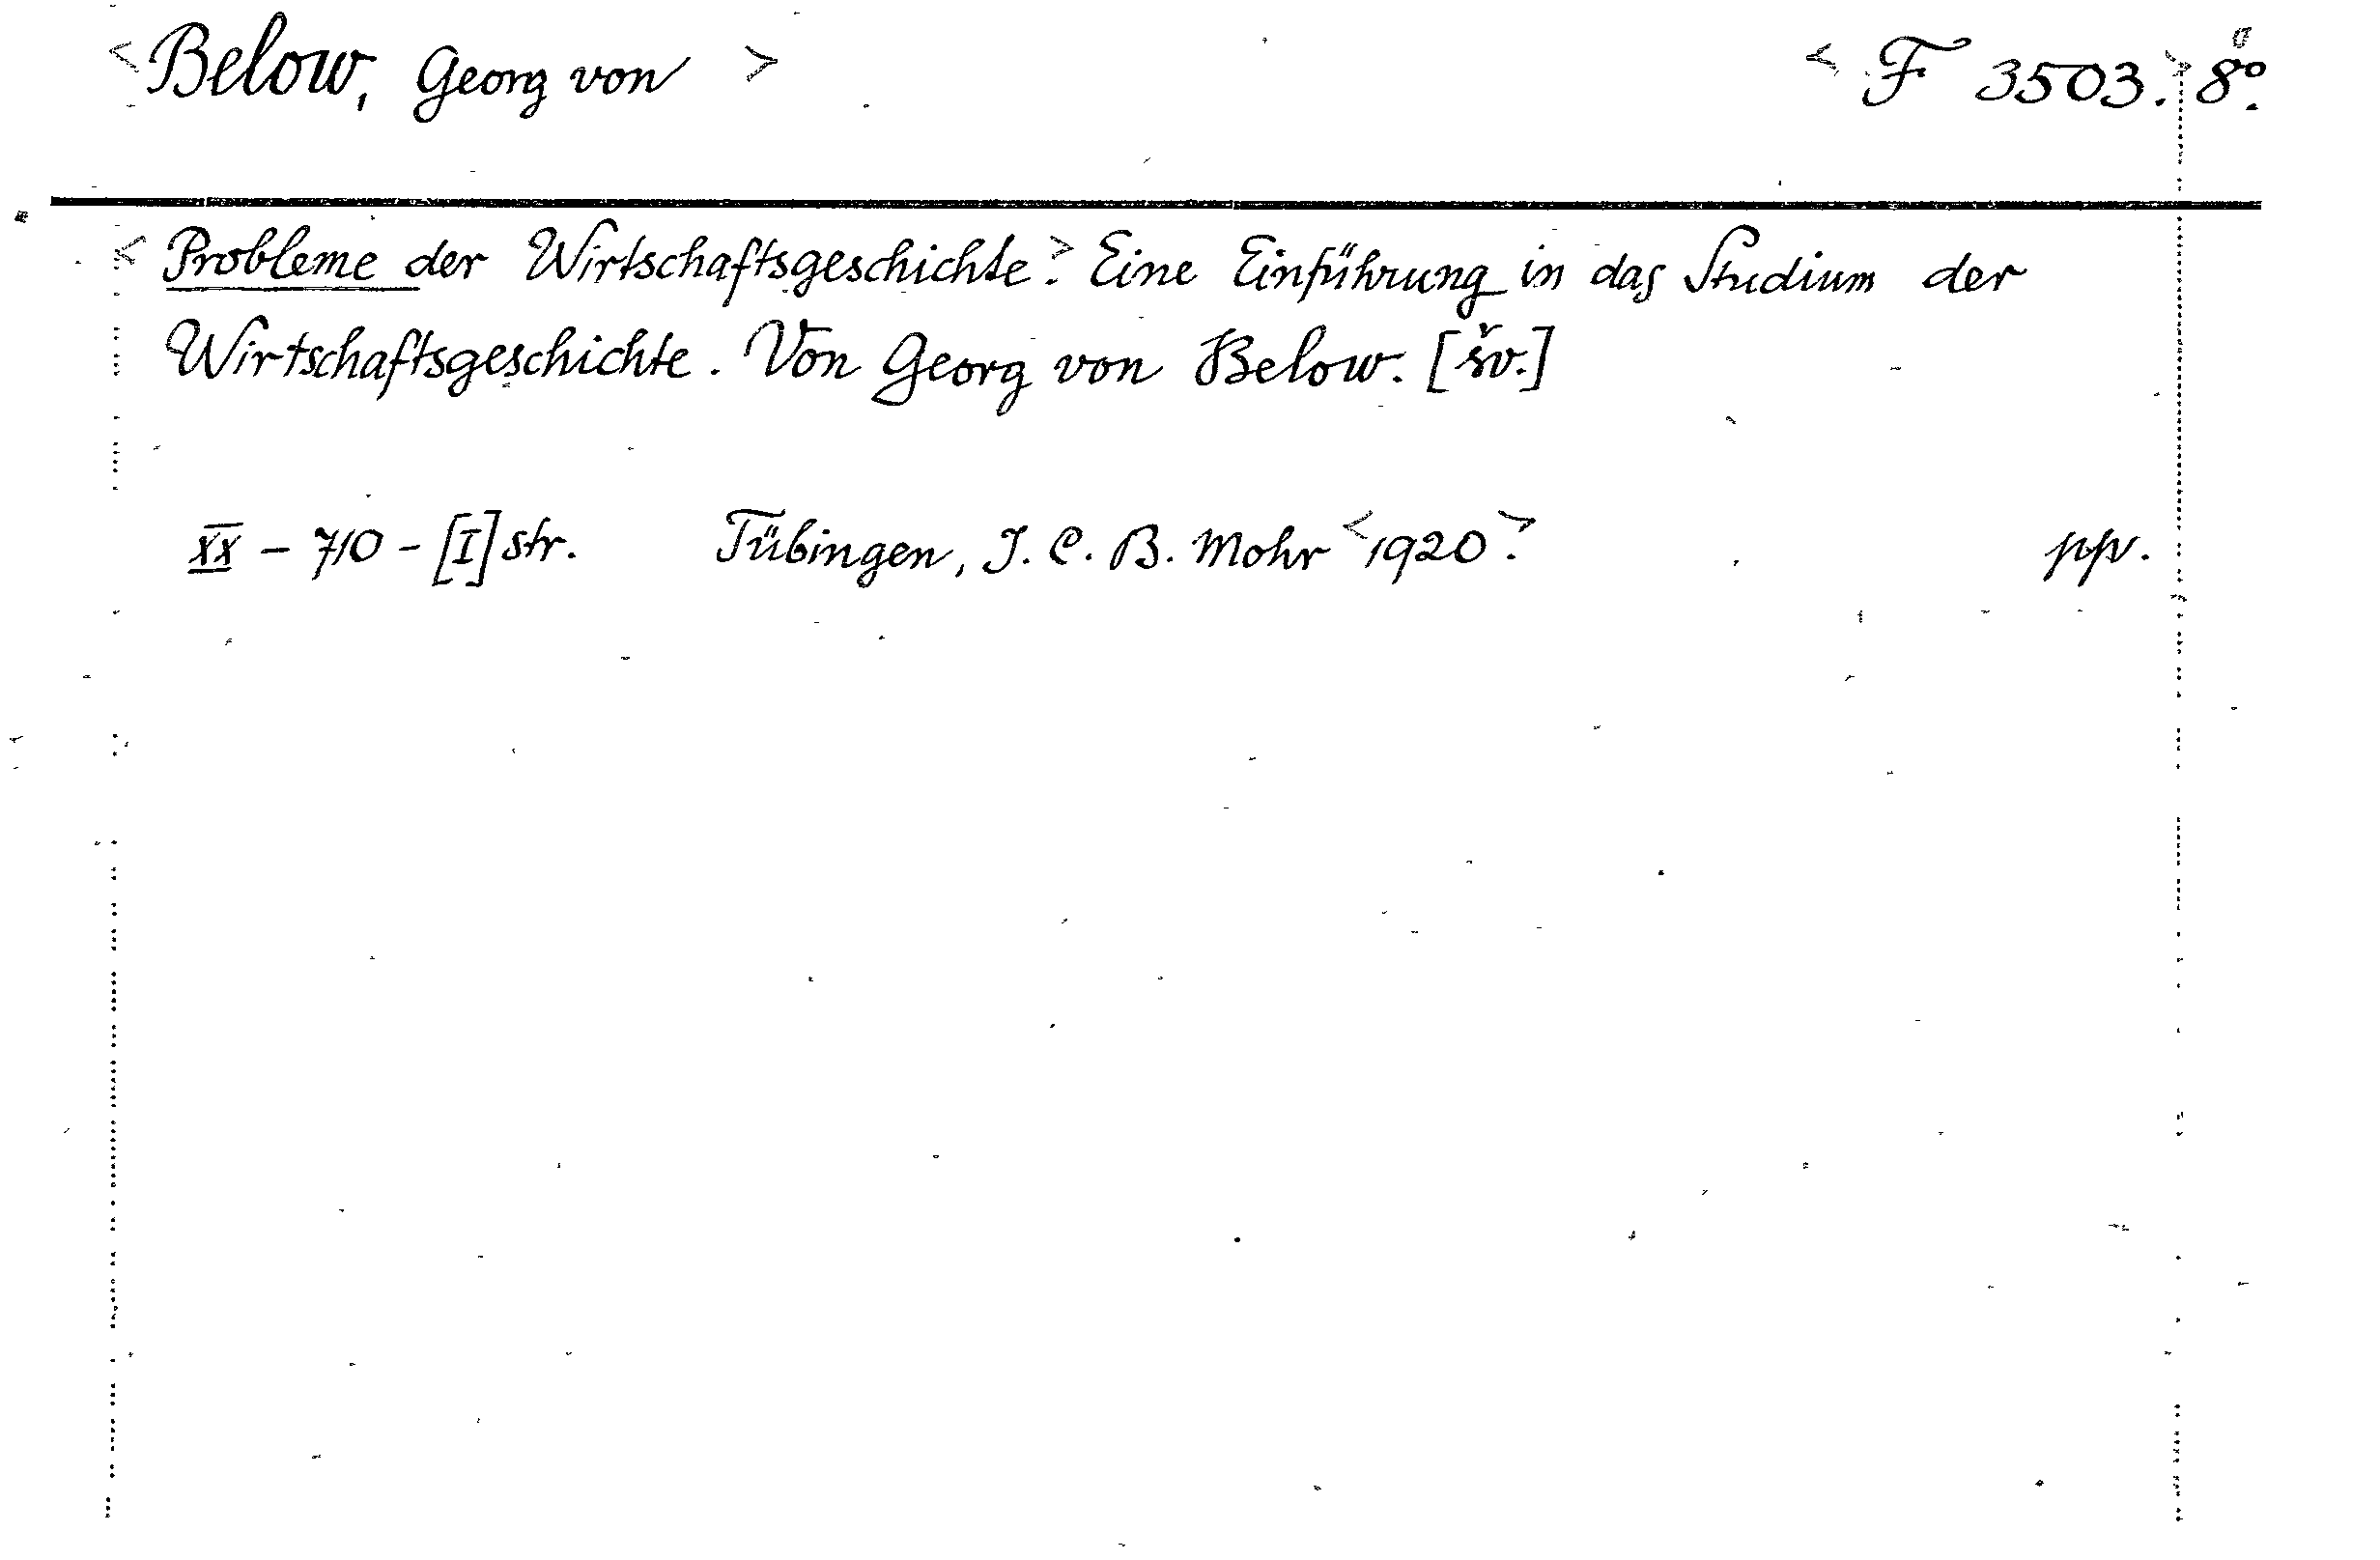 <Below, Georg von> <F 3503.> 8°.
<Probleme der Wirtschaftsgeschichte>. Eine Einführung in das Studium der
Wirtschaftsgeschichte. Von Georg von Below. [šv.]
XX – 710 – [I] str. Tübingen, J. C. B. Mohr <1920>. ppv.